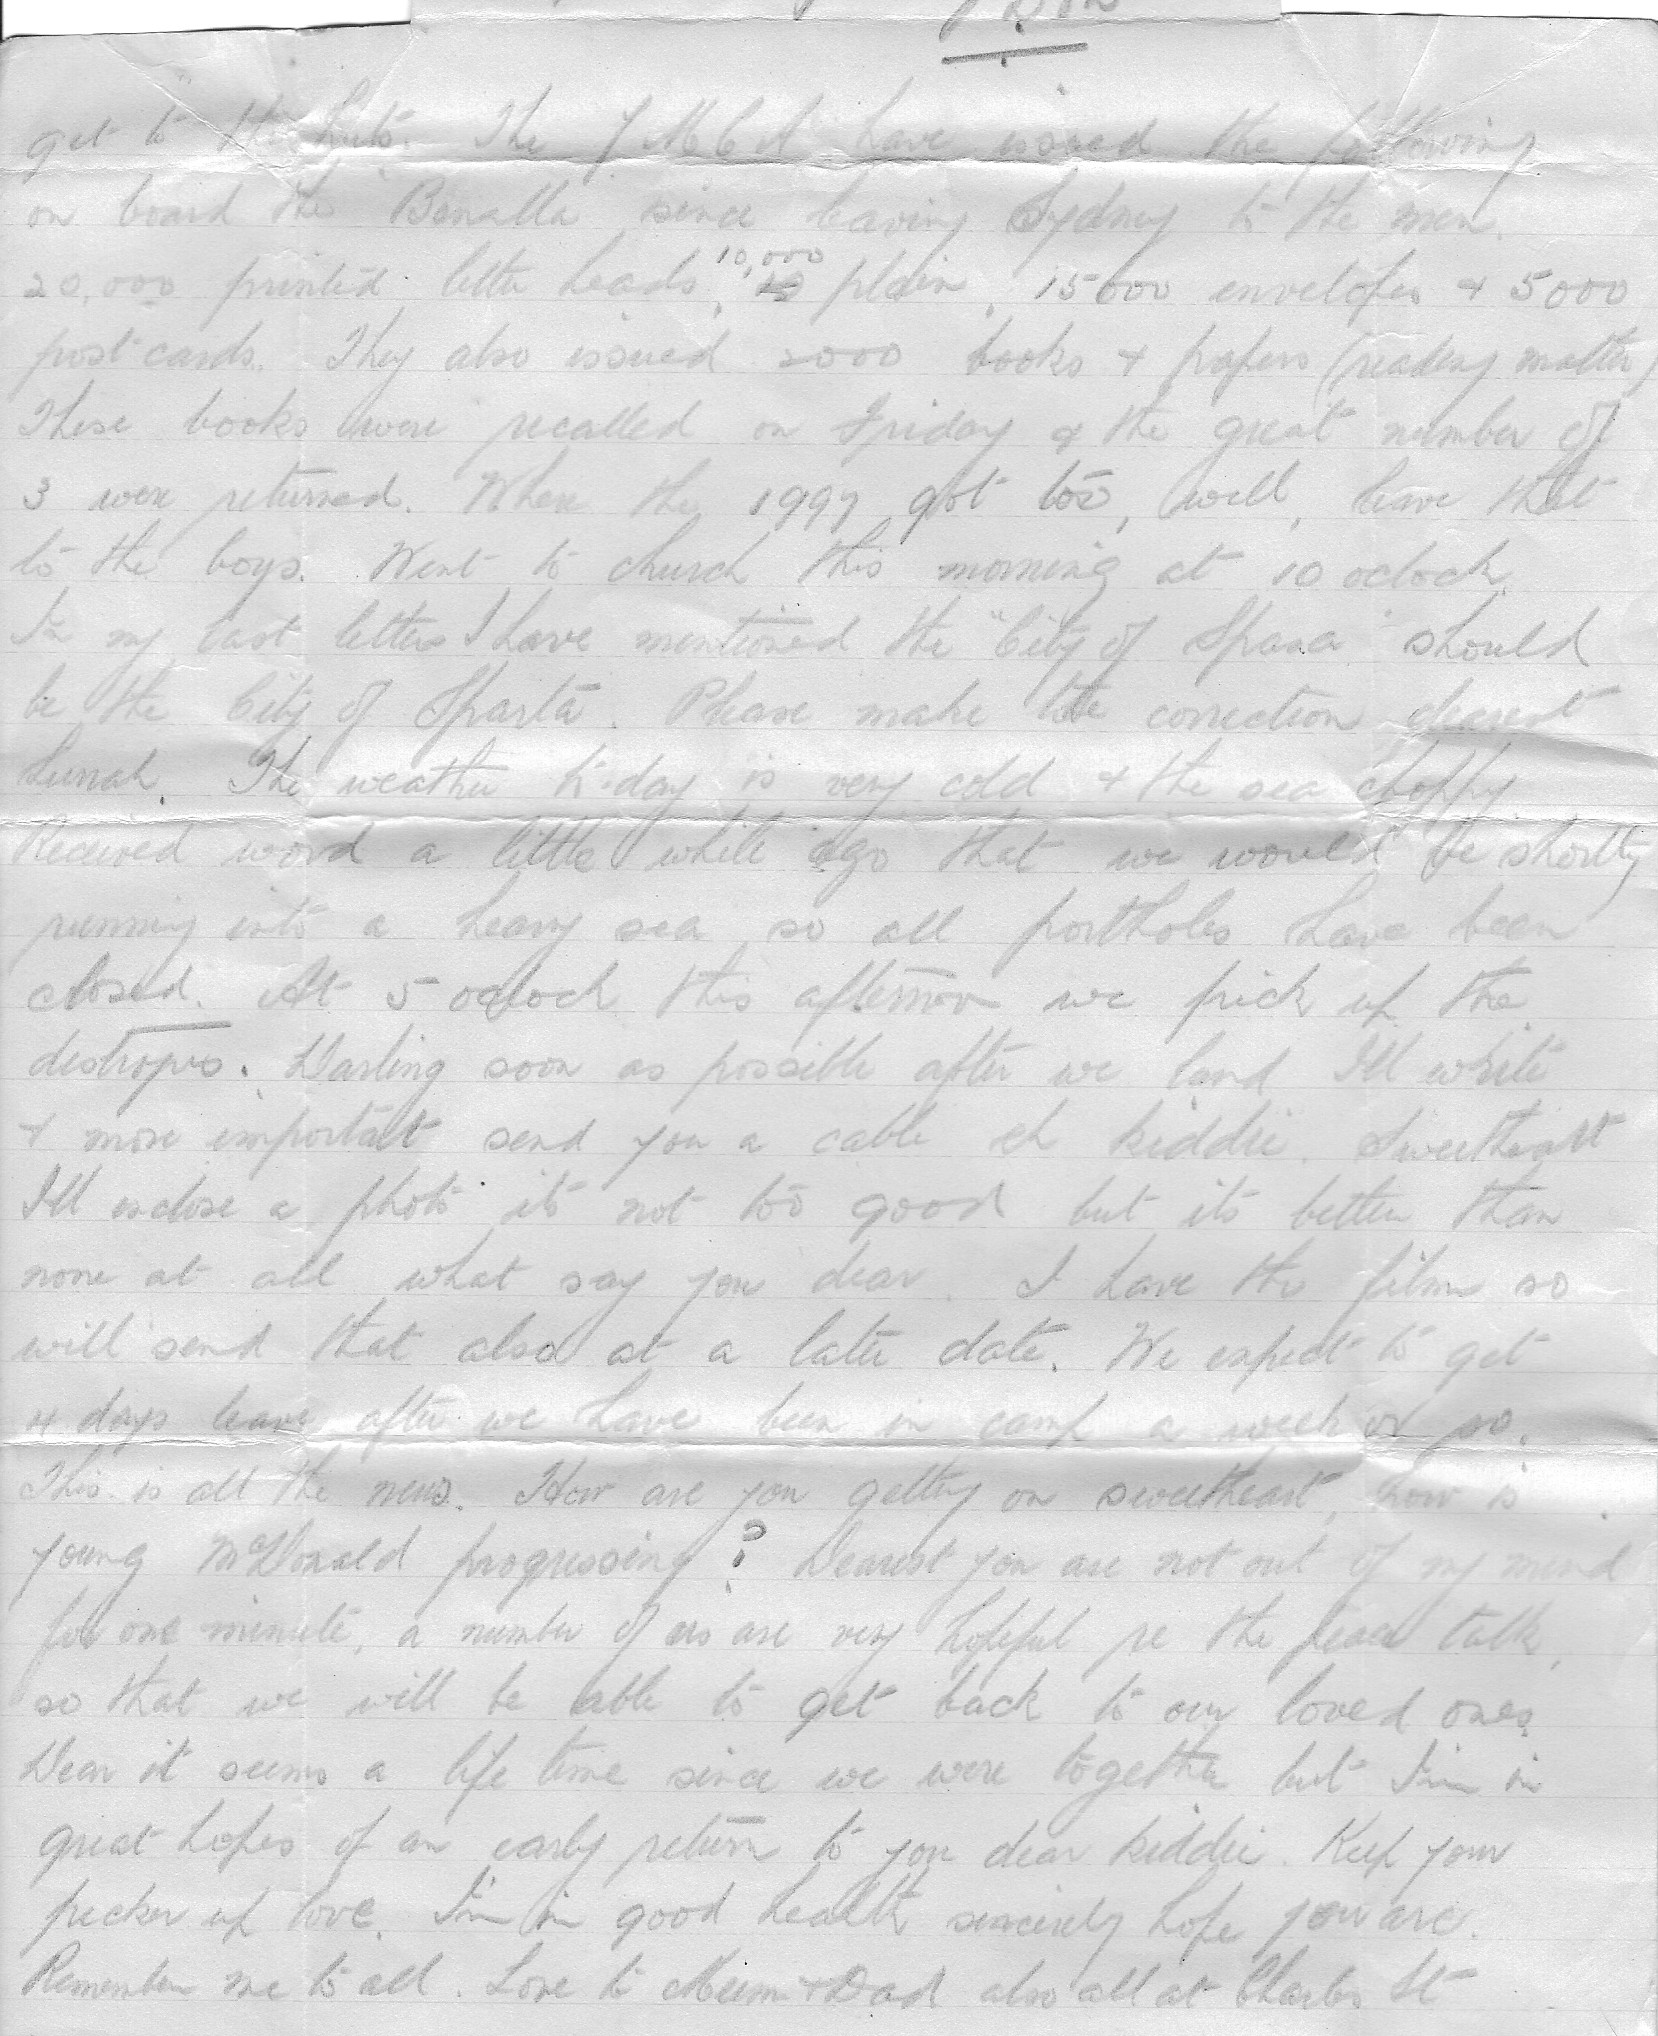 get to the huts. The Y M C A have issued the following
on board the Benalla since leaving Sydney to the men.
20,000 printed letter heads, 10,000 plain, 15000 envelopes & 5000
post cards. They also issued 2000 books & papers (reading matter)
These books were recalled on Friday & the great number of
3 were returned. Where the 1997 got too, well, leave that
to the boys. Went to church this morning at 10 oclock.
In my last letter I have mentioned the "City of Spara" should
be the City of Sparta. Please make the correction dearest
The weather to-day is very cold & the sea choppy
Received word a little while ago that we would be shortly
running into a heavy sea so all portholes have been
closed. At 5 oclock this afternoon we pick up the
destroyers. Darling soon as possible after we land I'll write
& more important send you a cable eh kiddie. Sweetheart
I'll enclose a photo it's not too good but its better than
none at all what say you dear. I have the film so
will send that also at a later date. We expect to get
4 days leave after we have been in camp a week or so.
This is all the news. How are you getting on sweetheart, how is
young McDonald progressing? Dearest you are not out of my mind
for one minute, a number of us are very hopeful re the peace talk,
so that we will be able to get back to our loved ones.
Dear it seems a life time since we were together but I'm in
great hopes of an early return to you dear kiddie. Keep your
pecker up love. I'm in good health sincerely hope you are.
Remember me to all. Love to Mum & Dad also all at Charles St